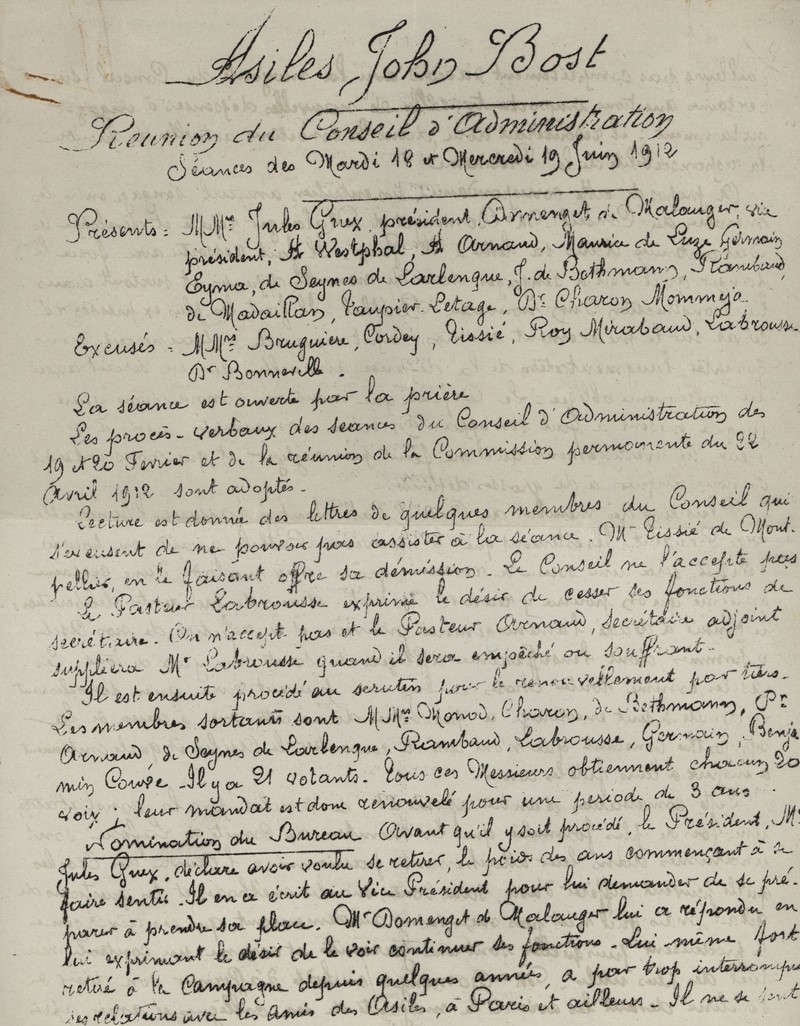 Asiles John Bost
Réunion du Conseil d'Administration
Séances des Mardi 18 et Mercredi 19 Juin 1912
Présents = MMrs Jules Guex, président, Domenget de Malauger, vice
président, A Westphal, A Arnaud, Maurice de Luze Germain
Eyma, de Seynes de Larlenque, J. de Bethmann, Rambaud,
de Madaillan, Taupier Letage, Dr Charon Mommeja
Excusés = MMrs Bruguière, Cordey, Tissié, Roy Mirabaud, Labrousse
Dr Bonneville.
La séance est ouverte par la prière
Les procès-verbaux des séances du Conseil d'Administration des
19 et 20 Fevrier et de la réunion de la Commission permanente du 22
Avril 1912 sont adoptés.
Lecture est donnée des lettres de quelques membres du Conseil qui
s'excusent de ne pouvoir pas assister à la séance. Mr Tissié de Mont-
pellier, en le faisant offre sa démission. Le Conseil ne l'accepte pas
Le Pasteur Labrousse exprime le désir de cesser ses fonctions de
secrétaire. On n'accept pas et le Pasteur Arnaud, secrétaire adjoint
suppliera Mr Labrousse quand il sera empêché ou souffrant.
Il est ensuite procédé au scrutin pour le renouvellement par tiers.
Les membres sortants sont MMrs Monod, Charon, de Bethmann, Pr
Arnaud, de Seynes de Larlenque, Rambaud, Labrousse, Germain, Benja
min Couve. Il y a 21 votants. Tous ces Messieurs obtiennent chacun 20
voix; leur mandat est donc renouvelé pour une periode de 3 ans.
Nomination du Bureau Avant qu'il y soit procédé, le Président, Mr
Jules Guex, déclare avoir voulu se retirer, le poids des ans commençant à se
faire sentir. Il en a écrit au Vice Président pour lui demander de se pré-
parer à prendre sa place. Mr Domenget de Malauger lui a répondu en
lui exprimant le désir de le voir continuer ses fonctions. Lui même fort
retiré à la Campagne depuis quelques années, a par trop interrompu
ses relations avec les Amis des Asiles, à Paris et ailleurs. Il ne se sent